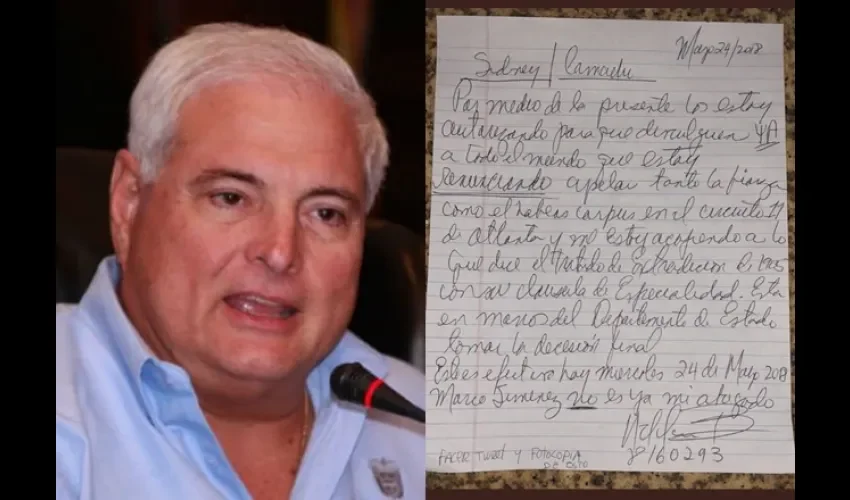 Mayo 24/2018
Sidney / Camacho
Por medio de la presente los estoy
autorizando para que divulguen YA
a todo el mundo que estoy
renunciando apelar tanto la fianza
como el habeas corpus en el circuito 11
de Atlanta y me estoy acogiendo a lo
que dice el tratado de extradicion de 1905
con su clausula de Especialidad. Esta
en manos del Departamento de Estado
tomar la decision final
Esto es efectivo hoy miercoles 24 de Mayo 2018
Marco Jimenez no es ya mi abogado
8160293
HACER TWEET Y FOTOCOPIA
DE ESTO